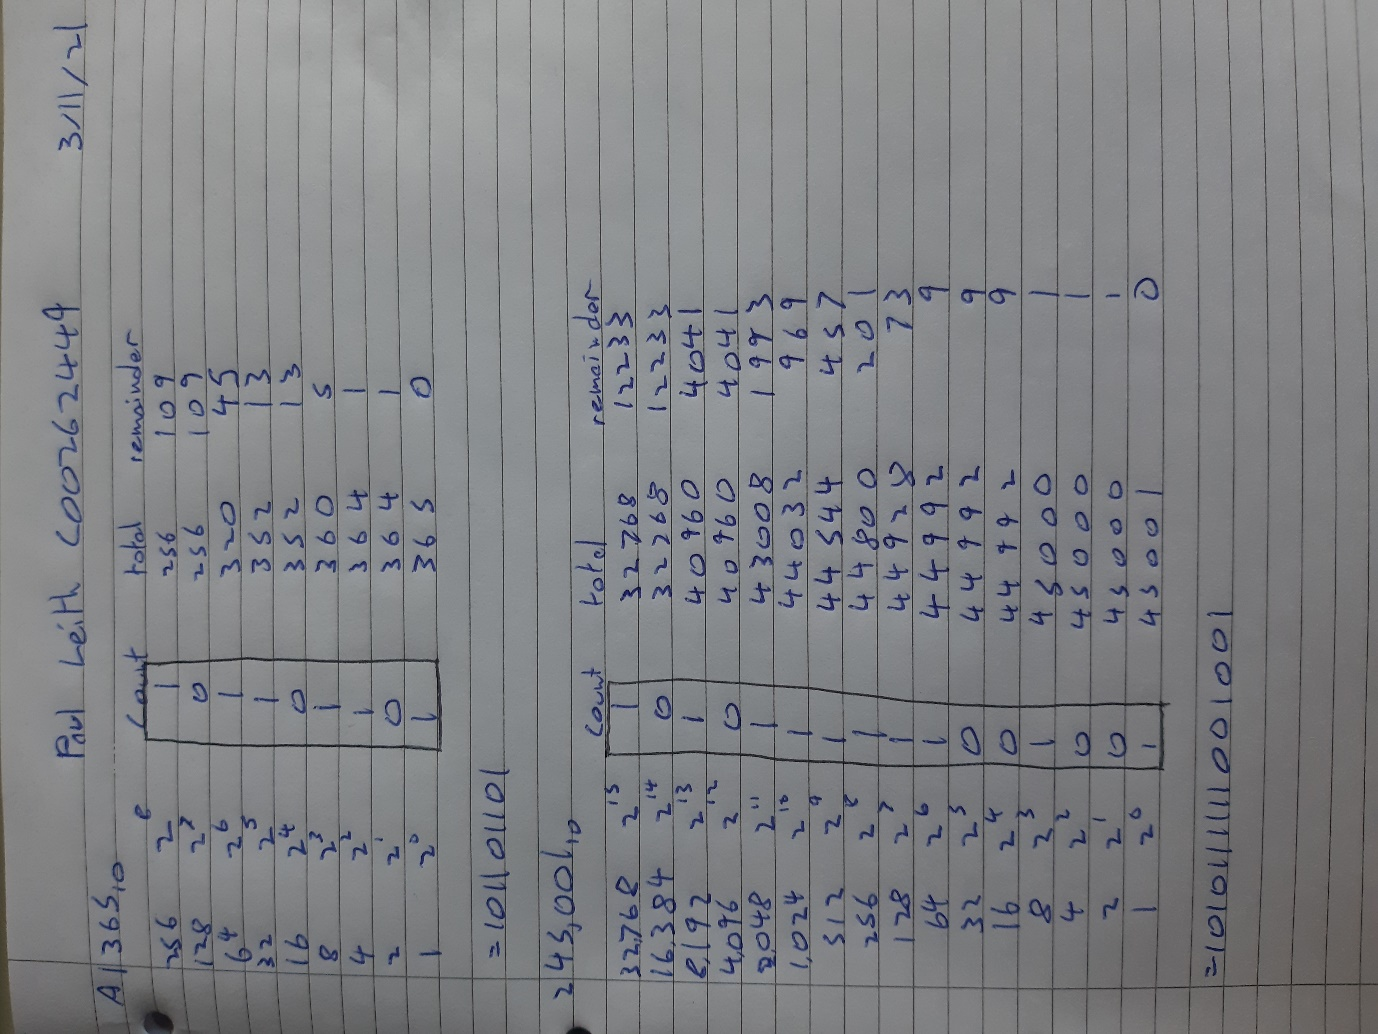 Paul Leith C00262449 3/11/21
A1 365₁₀
Count total remainder
256 2⁸ 1 256 109
128 2⁷ 0 256 109
64 2⁶ 1 320 45
32 2⁵ 1 352 13
16 2⁴ 0 352 13
8 2³ 1 360 5
4 2² 1 364 1
2 2¹ 0 364 1
1 2⁰ 1 365 0
=101101101
2 45,001₁₀
Count total remainder
32,768 2¹⁵ 1 32768 12233
16,384 2¹⁴ 0 32268 12233
8,192 2¹³ 1 40960 4041
4,096 2¹² 0 40960 4041
2,048 2¹¹ 1 43008 1993
1,024 2¹⁰ 1 44032 969
512 2⁹ 1 44544 457
256 2⁸ 1 44800 201
128 2⁷ 1 44928 73
64 2⁶ 1 44992 9
32 2⁵ 0 44992 9
16 2⁴ 0 44992 9
8 2³ 1 45000 1
4 2² 0 45000 1
2 2¹ 0 45000 1
1 2⁰ 1 45001 0
=1010111111001001